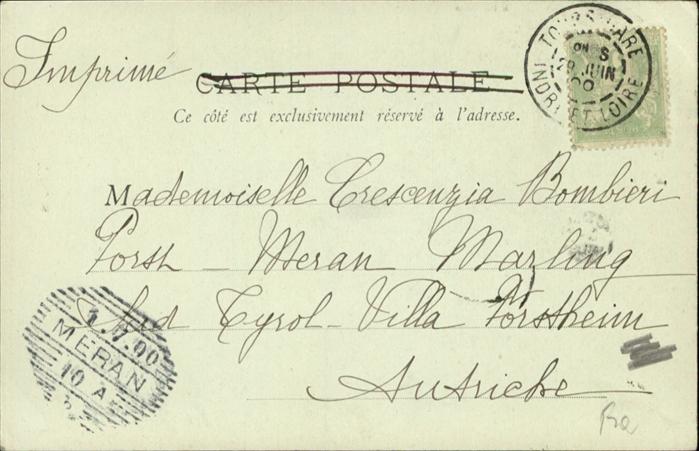 Imprimé
CARTE POSTALE
Ce côté est exclusivement réservé à l'adresse.
TOURS GARE
8
JUIN
00
INDRE ET LOIRE
Mademoiselle Crescenzia Bombieri
Forst - Meran Marling
Sud Tyrol - Villa Forstheim
Autriche
00
MERAN
10 A